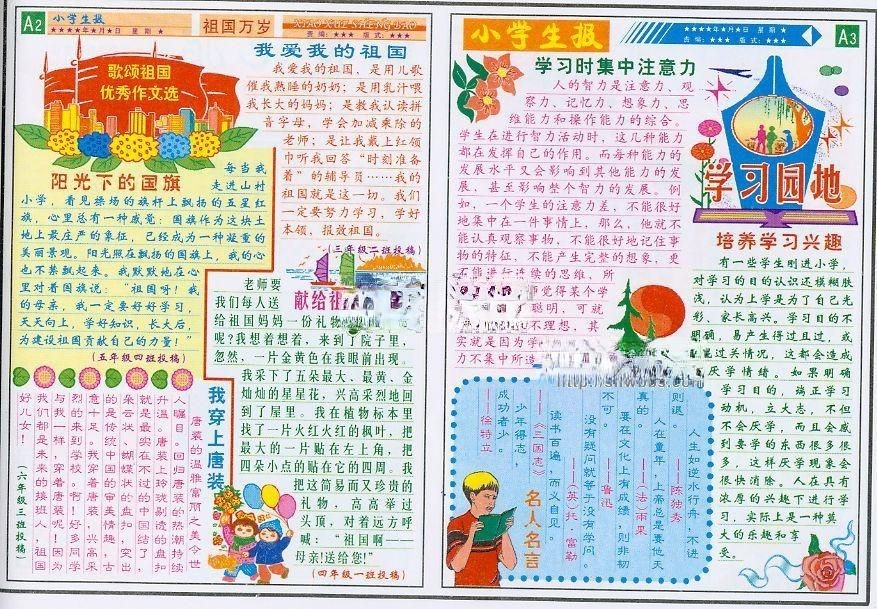 A2
小学生报
★★★★年★月★日 星期★
祖国万岁
XIAO XUE SHENG BAO
责编：★★★ 版式：★★★
歌颂祖国
优秀作文选
我爱我的祖国
我爱我的祖国，是用儿歌
催我熟睡的奶奶；是用乳汁喂
我长大的妈妈；是教我认读拼
音字母，学会加减乘除的
老师；是让我戴上红领
巾听我回答“时刻准备
着”的辅导员……我的
祖国就是这一切。我们
一定要努力学习，学好
本领，报效祖国。
（三年级二班投稿）
阳光下的国旗
每当我
走进山村
小学，看见操场的旗杆上飘扬的五星红
旗，心里总有一种感觉：国旗作为这块土
地上最庄严的象征，已经成为一种凝重的
美丽景观。阳光照在飘扬的国旗上，我的心
也不禁飘起来。我默默地在心
里对着国旗说：“祖国呀！我
的母亲，我一定要好好学习，
天天向上，学好知识，长大后，
为建设祖国贡献自己的力量！”
（五年级四班投稿）
献给祖
老师要
我们每人送
给祖国妈妈一份礼物
呢？我想着想着，来到了院子里，
忽然，一片金黄色在我眼前出现，
我采下了五朵最大、最黄、金
灿灿的星星花，兴高采烈地回
到了屋里。我在植物标本里
找了一片火红火红的枫叶，把
最大的一片贴在左上角，把
四朵小点的贴在它的四周。我
把这简易而又珍贵的
礼物，高高举过
头顶，对着远方呼
喊：“祖国啊——
母亲！送给您！”
（四年级一班投稿）
我穿上唐装
唐装的温雅富丽之美令世
人瞩目。回归唐装的热潮持续
升温。唐装上玲珑剔透的中国结
就是最实在不过的
朵云状、蝴蝶状的盘扣，突出
的是传统的审美情趣，古
意十足。我穿着唐装，兴高采
烈的来到学校，啊！好多同学
与我一样，穿着唐装呢！因为
我们都是未来的接班人，祖国
好儿女！
（六年级三班投稿）
小学生报
★★★★年★月★日 星期★
责编：★★★ 版式：★★★
A3
学习时集中注意力
人的智力是注意力、观
察力、记忆力、想象力、思
维能力和操作能力的综合。
学生在进行智力活动时，这几种能力
都在发挥自己的作用。而每种能力的
发展水平又会影响到其他能力的发
展、甚至影响整个智力的发展。例
如，一个学生的注意力差，不能很好
地集中在一件事情上，那么，他就不
能认真观察事物，不能很好地记住事
物的特征，不能产生完整的想象，更
不能进行连续的思维，所
师觉得某个学
聪明，可就
不理想，其
实就是因为学
力不集中所造
学习园地
培养学习兴趣
有一些学生刚进小学，
对学习的目的认识还模糊肤
浅，认为上学是为了自己光
彩、家长高兴。学习目的不
明确，易产生得过且过，或
蒙混过关情况，这都会造成
厌学情绪。如果明确
学习目的，端正学习
动机，立大志，不但
不会厌学，而且会感
到要学的东西很多很
多，这样厌学现象会
很快消除。人在具有
浓厚的兴趣下进行学
习，实际上是一种莫
大的乐趣和享
受。
人生如逆水行舟，不进
则退。
——陈独秀
人在童年，上帝总是要他天
真的。
——（法）雨果
要在文化上有成绩，则非韧
不可。
——鲁迅
没有疑问就等于没有学问。
——（英）托·富勒
读书百遍，而义自见。
——《三国志》
少年得志，
成功者少。
——徐特立
名人名言